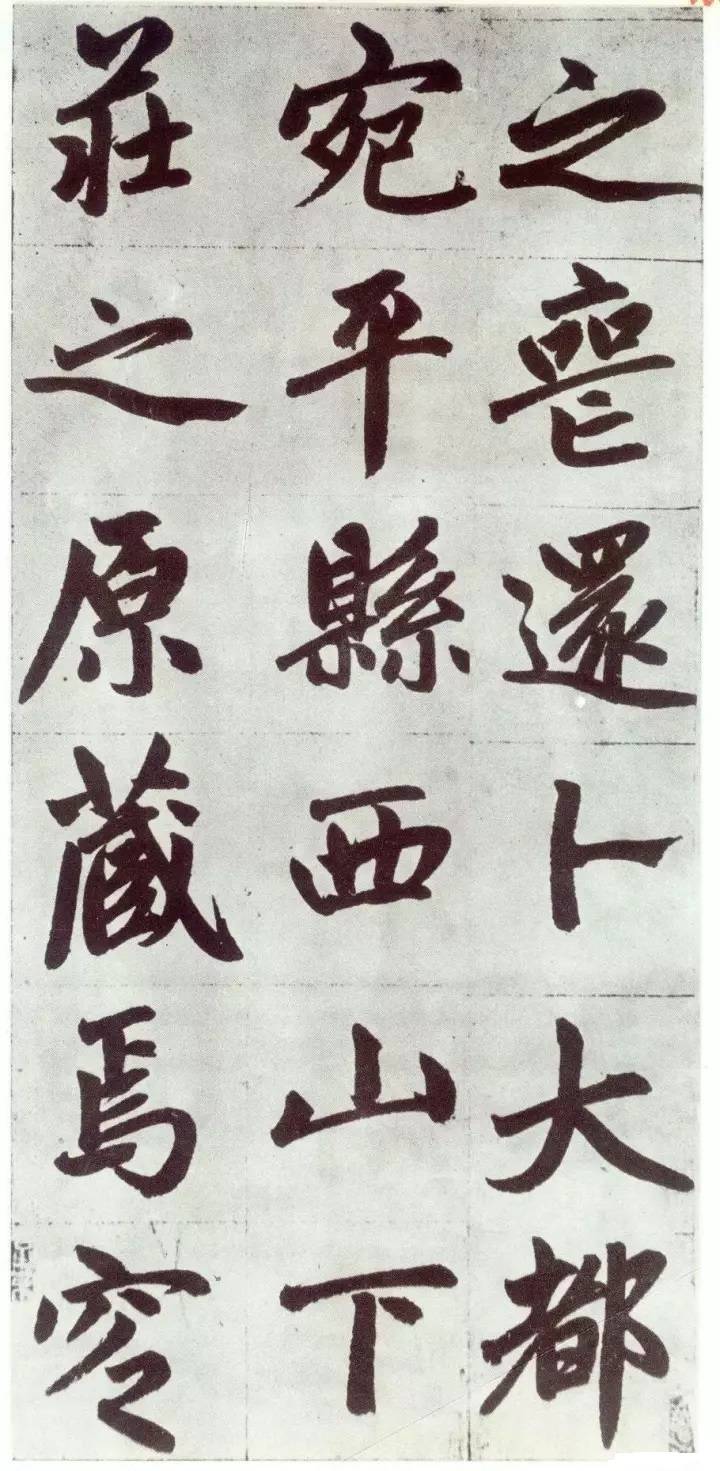 之喪還卜大都
宛平縣西山下
莊之原蔵焉窆